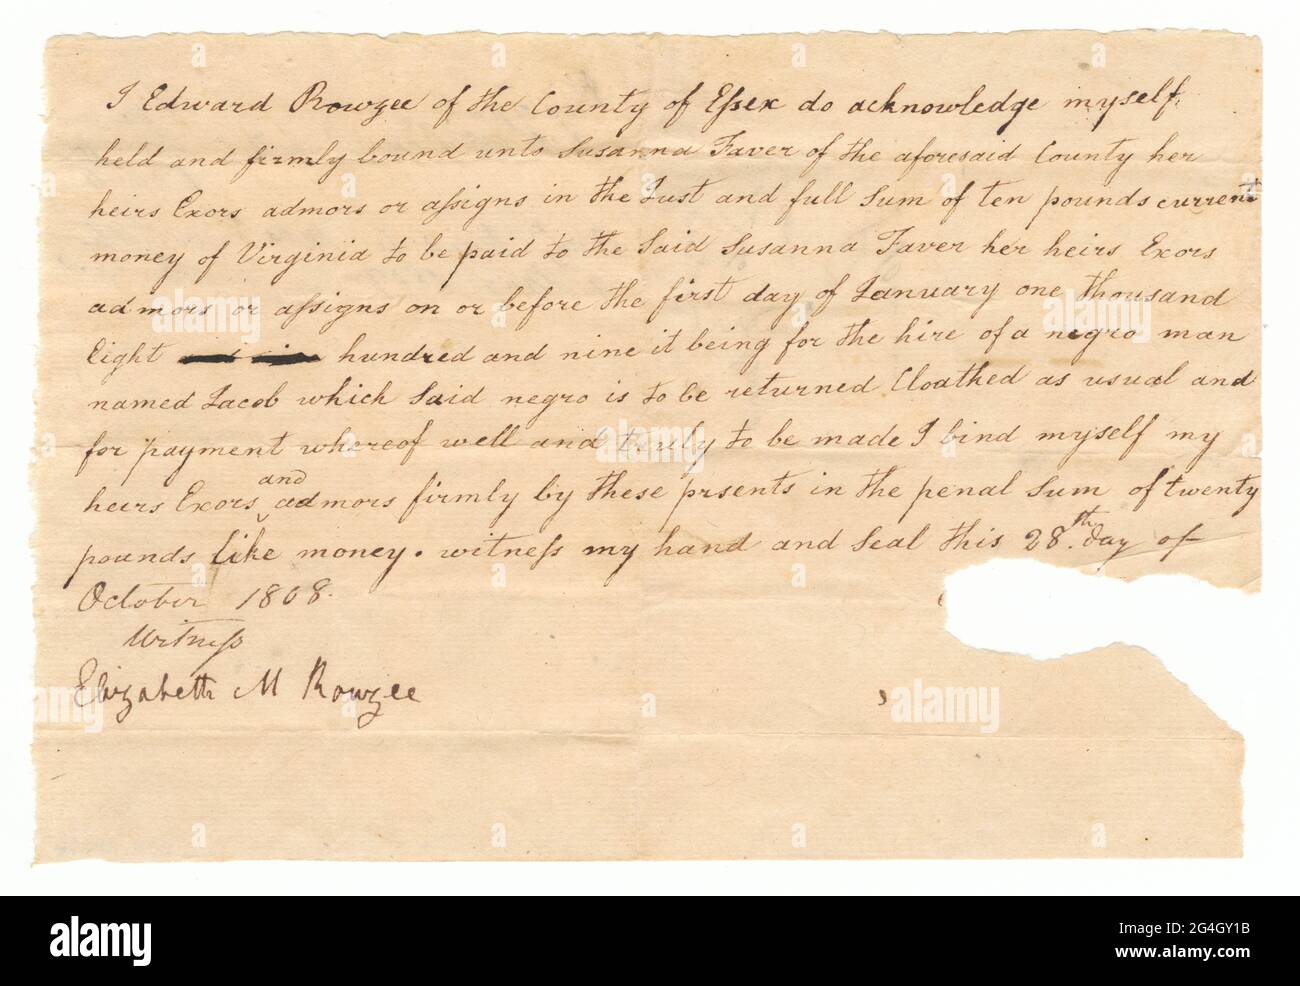 I Edward Rowzee of the County of Eſsex do acknowledge myself
held and firmly bound unto Susanna Faver of the aforesaid County her
heirs Exors admors or aſsigns in the Just and full Sum of ten pounds current
money of Virginia to be paid to the Said Susanna Faver her heirs Exors
admors or aſsigns on or before the first day of January one thousand
Eight hundred and nine it being for the hire of a negro man
named Jacob which Said negro is to be returned Cloathed as usual and
for payment whereof well and truly to be made I bind myself my
heirs Exors and admors firmly by these prsents in the penal Sum of twenty
pounds like money. witneſs my hand and Seal this 28th day of
October 1808.
Witneſs
Elizabeth M Rowzee
alamy
Image ID: 2G4GY1B
www.alamy.com